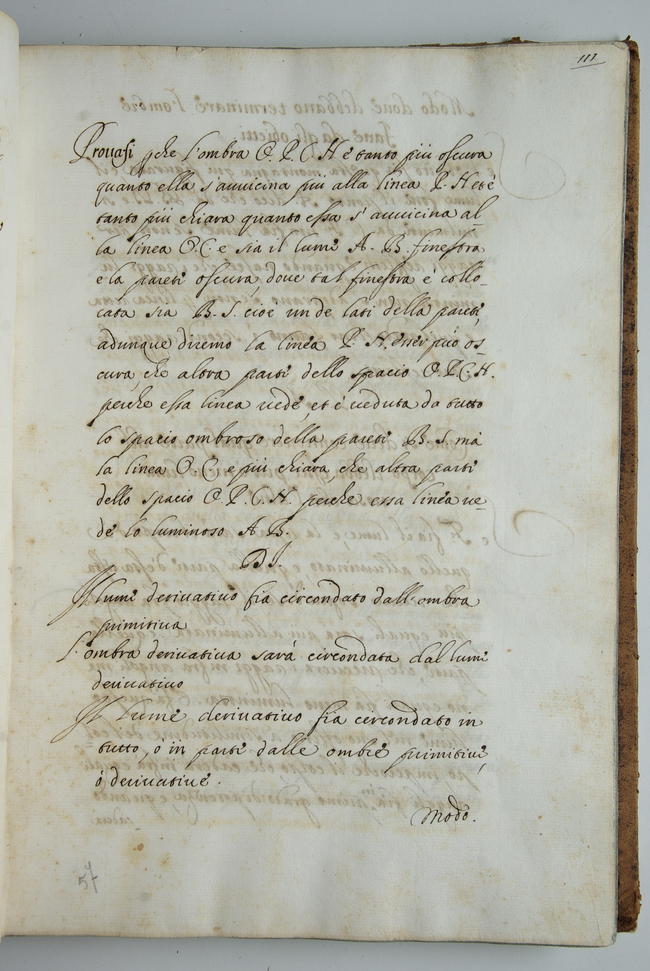 111
Prouasi che l'ombra O. P. C. H è tanto più oscura
quanto ella s'auuicina più alla linea P. H et è
tanto più chiara quanto essa s'auuicina al-
la linea O. C. e sia il lume A. B. finestra
e la parete oscura, doue tal finestra è collo-
cata sia B. S. cioè un de lati della parete,
adunque diremo la linea P. H. esser più os-
cura, che altra parte dello spacio O. P. C. H.
perche essa linea uede, et è ueduta da tutto
lo spacio ombroso della parete B. S. mà
la linea O. C. e più chiara, che altra parte
dello spacio O. P. C. H. perche essa linea ue-
de lo luminoso A. B.
Il lume deriuatiuo fia circondato dall'ombra
primitiua
L'ombra deriuatiua sarà circondata dal lume
deriuatiuo
Il lume deriuatiuo fia circondato in
tutto, ò in parte dalle ombre primitiue,
ò deriuatiue.
Modo.
57